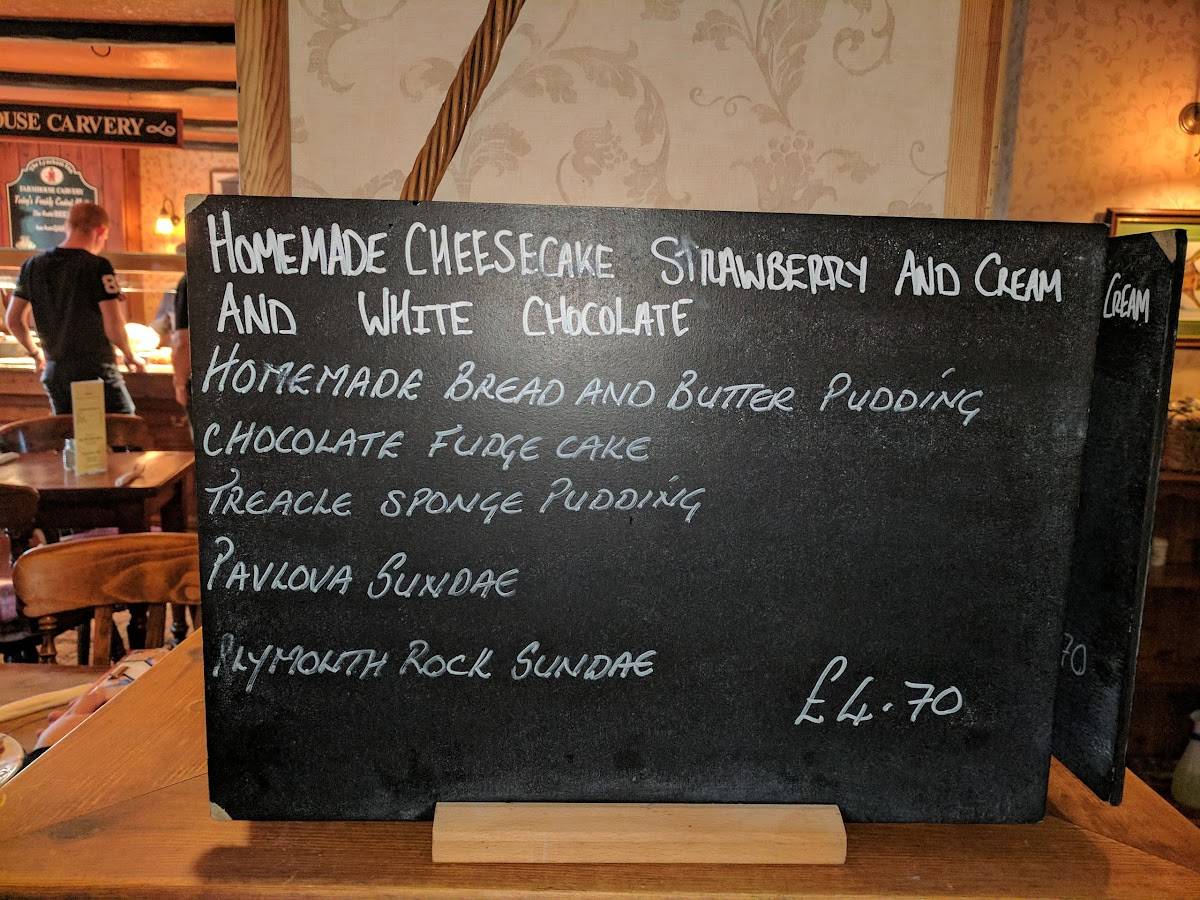 OUSE CARVERY
The Lyneham Inn
FARMHOUSE CARVERY
HOMEMADE CHEESECAKE STRAWBERRY AND CREAM
AND WHITE CHOCOLATE
HOMEMADE BREAD AND BUTTER PUDDING
CHOCOLATE FUDGE CAKE
TREACLE SPONGE PUDDING
PAVLOVA SUNDAE
PLYMOUTH ROCK SUNDAE
£4.70
CREAM
70
8